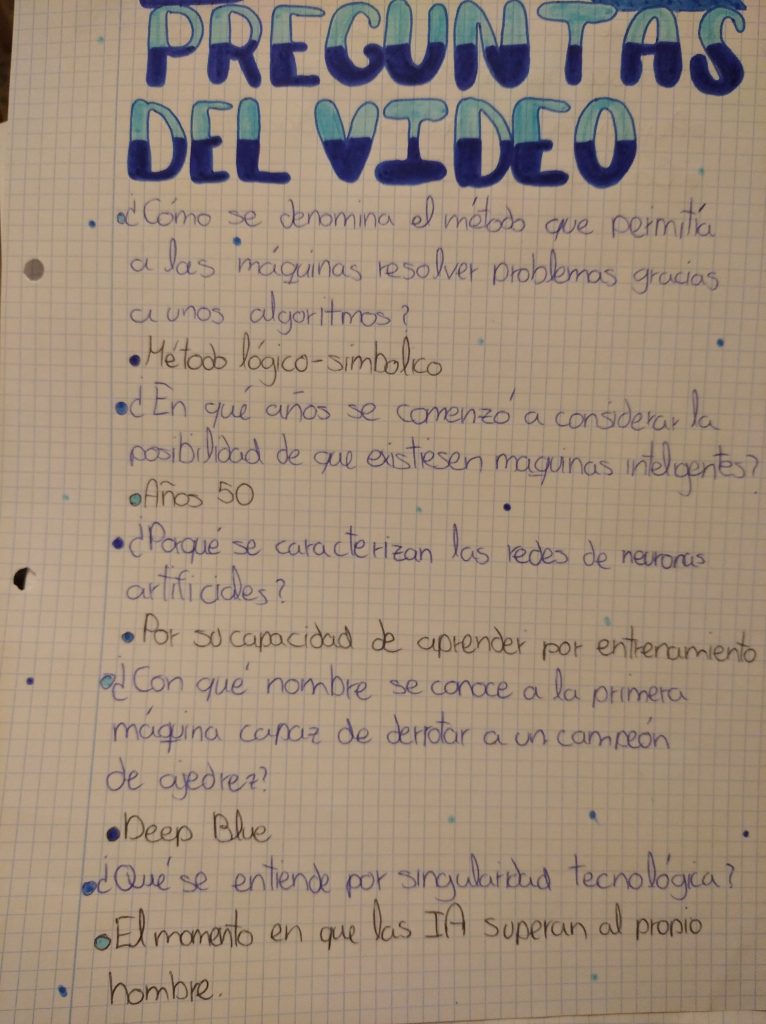 PREGUNTAS
DEL VIDEO
¿Cómo se denomina el método que permitía
a las máquinas resolver problemas gracias
a unos algoritmos?
Método lógico-simbolco
¿En qué años se comenzó a considerar la
posibilidad de que existiesen maquinas inteligentes?
Años 50
¿Porqué se caracterizan las redes de neuronas
artificiales?
Por su capacidad de aprender por entrenamiento
¿Con qué nombre se conoce a la primera
máquina capaz de derrotar a un campeón
de ajedrez?
Deep Blue
¿Qué se entiende por singularidad tecnológica?
El momento en que las IA superan al propio
hombre.